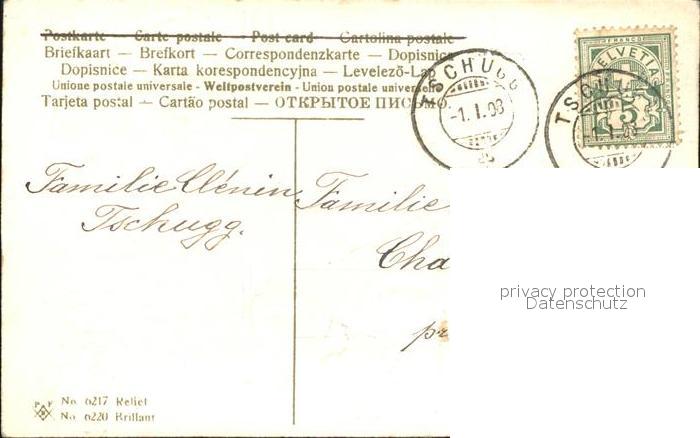 Postkarte — Carte postale — Post card — Cartolina postale
Briefkaart — Brefkort — Correspondenzkarte — Dopisnica
Dopisnice — Karta korespondencyjna — Levelező-Lap
Unione postale universale - Weltpostverein - Union postale universelle
Tarjeta postal — Cartão postal — ОТКРЫТОЕ ПИСЬМО.
TSCHUGG
-1.I.08
FRANCO
HELVETIA
5
TSCHU
-1.I.08
Familie Clénin
Tschugg.
Familie
Cha
pr
privacy protection
Datenschutz
No. 6217 Relief
No. 6220 Brillant